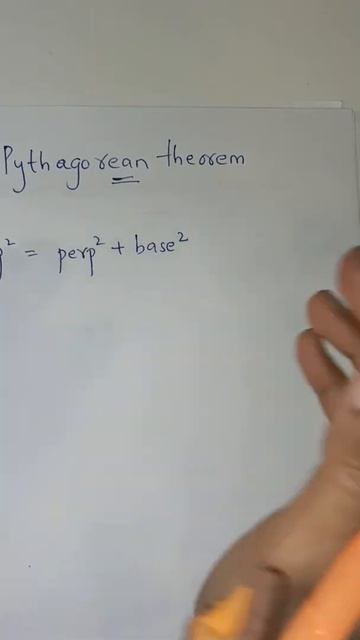 Pythagorean theorem
² = perp² + base²